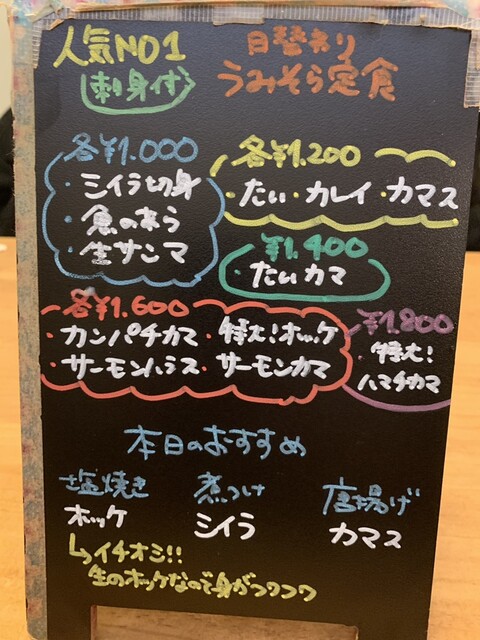 人気NO1
刺身付
日替わり
うみそら定食
各¥1.000
・シイラ切身
・魚のあら
・生サンマ
各¥1.200
・たい・カレイ・カマス
¥1.400
・たいカマ
各¥1.600
・カンパチカマ・特大!ホッケ
・サーモンハラス・サーモンカマ
¥1.800
・特大!
ハマチカマ
本日のおすすめ
塩焼き
ホッケ
煮つけ
シイラ
唐揚げ
カマス
↳イチオシ!!
生のホッケなので身がフワフワ